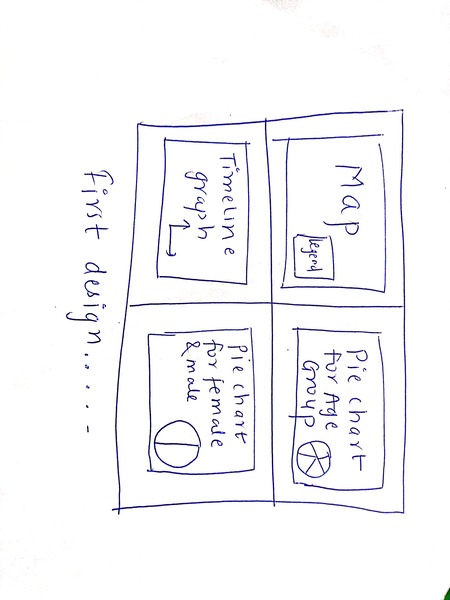 Map
Legend
Pie chart
for Age
Group
Timeline
graph
Pie chart
for female
& male
First design.....